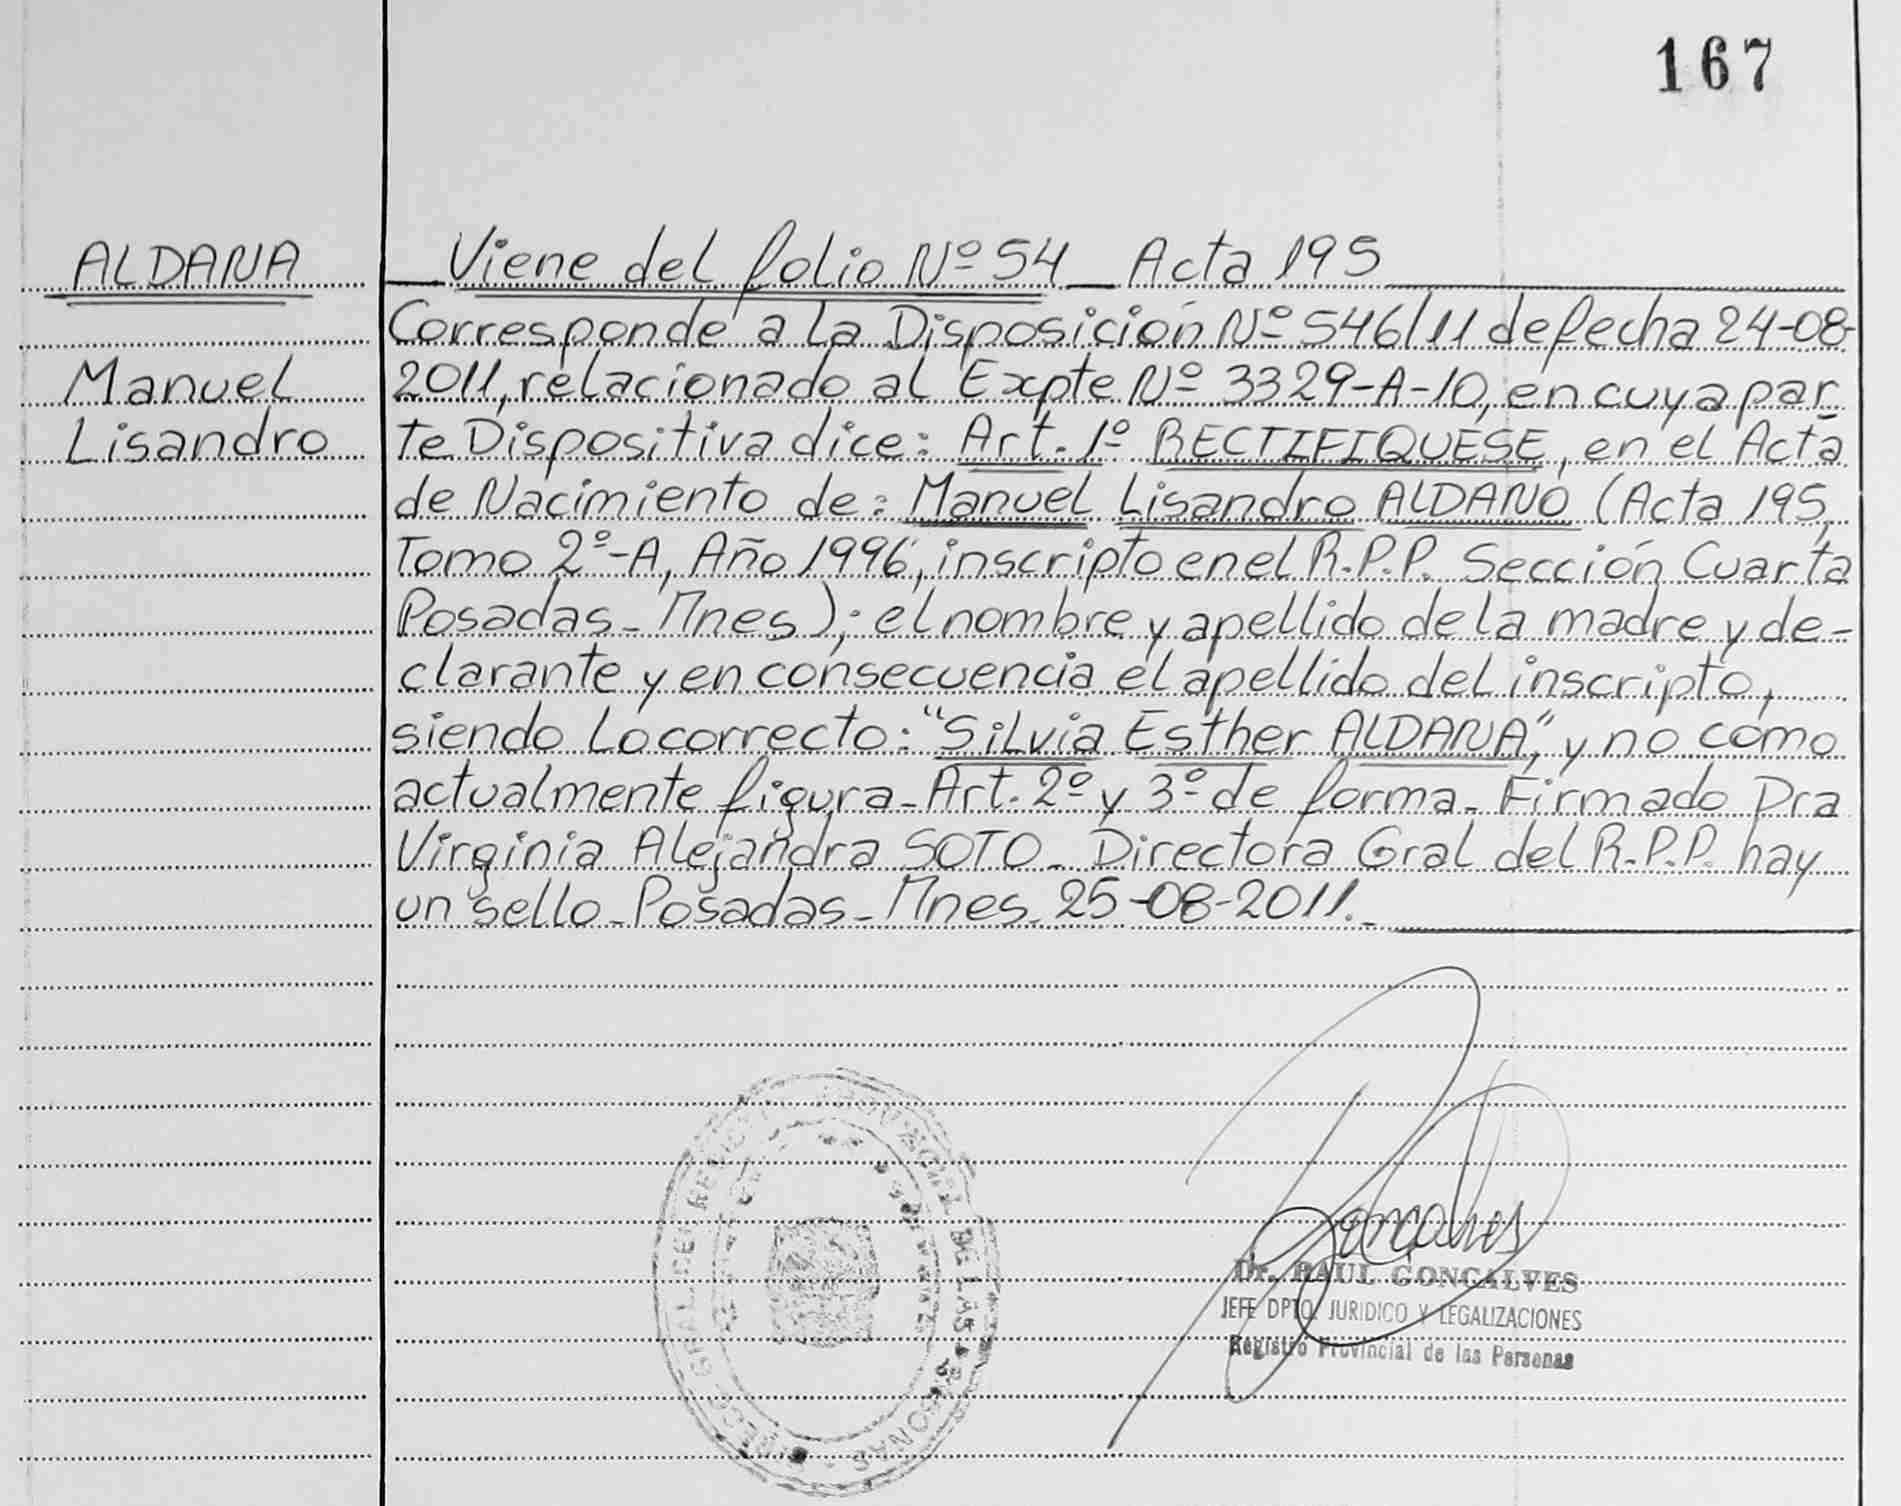 167
ALDANA
Manuel
Lisandro
Viene del folio Nº 54 _ Acta 195
Corresponde a la Disposición Nº 546/11 de fecha 24-08-
2011, relacionado al Expte Nº 3329-A-10, en cuya par-
te Dispositiva dice: Art. 1º RECTIFIQUESE, en el Acta
de Nacimiento de: Manuel Lisandro ALDANO (Acta 195,
Tomo 2º-A, Año 1996, inscripto en el R.P.P. Sección Cuarta
Posadas - Mnes); el nombre y apellido de la madre y de-
clarante y en consecuencia el apellido del inscripto,
siendo lo correcto: "Silvia Esther ALDANA", y no como
actualmente figura - Art. 2º y 3º de forma - Firmado Dra
Virginia Alejandra SOTO - Directora Gral del R.P.P. hay
un sello - Posadas - Mnes. 25-08-2011. -
Goncalves
Dr. RAUL GONCALVES
JEFE DPTO. JURIDICO Y LEGALIZACIONES
Registro Provincial de las Personas
DE LAS PERSONAS